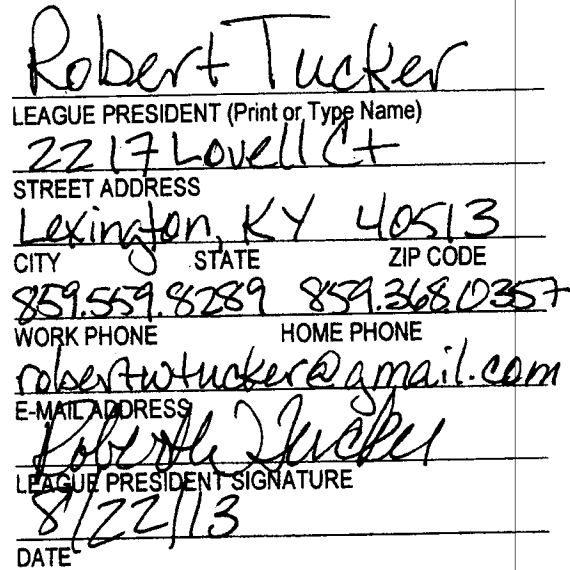 Robert Tucker
LEAGUE PRESIDENT (Print or Type Name)
2217 Lovell Ct
STREET ADDRESS
Lexington, KY 40513
CITY STATE ZIP CODE
859.559.8289 859.368.0357
WORK PHONE HOME PHONE
robertwtucker@gmail.com
E-MAIL ADDRESS
Robert W Tucker
LEAGUE PRESIDENT SIGNATURE
8/22/13
DATE